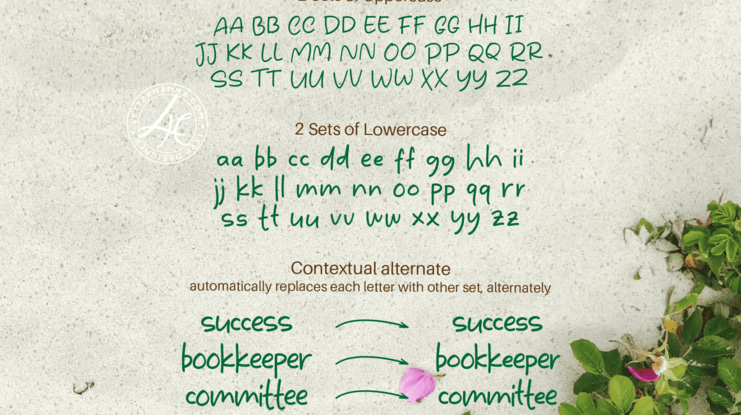 2 Sets of Uppercase
AA BB CC DD EE FF GG HH II
JJ KK LL MM NN OO PP QQ RR
SS TT UU VV WW XX YY ZZ
2 Sets of Lowercase
aa bb cc dd ee ff gg hh ii
jj kk ll mm nn oo pp qq rr
ss tt uu vv ww xx yy zz
Contextual alternate
automatically replaces each letter with other set, alternately
success success
bookkeeper bookkeeper
committee committee